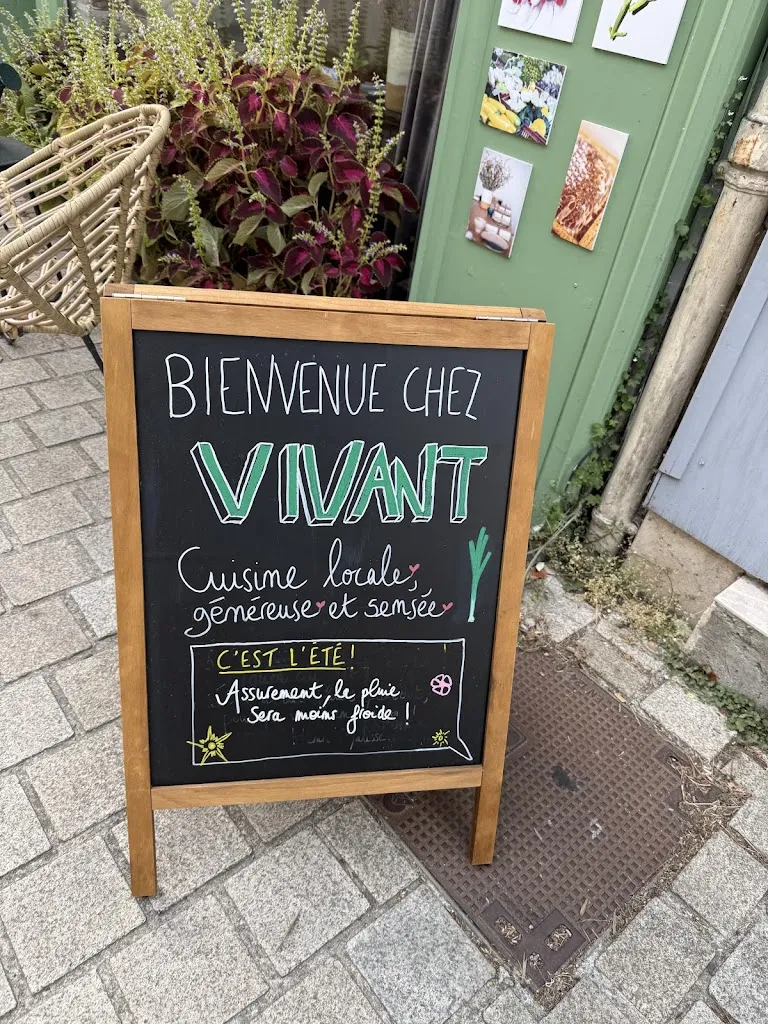 BIENVENUE CHEZ
VIVANT
Cuisine locale,
généreuse et sensée
C'EST L'ÉTÉ !
Assurément, la pluie
sera moins froide !